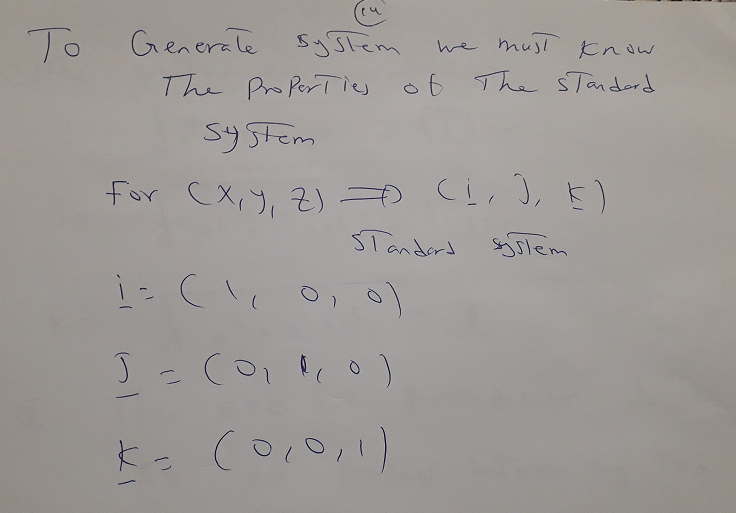 14
To Generate system we must know
The Properties of The standard
system
For (x, y, z) ⇒ (i, j, k)
standard system
i = (1, 0, 0)
j = (0, 1, 0)
k = (0, 0, 1)